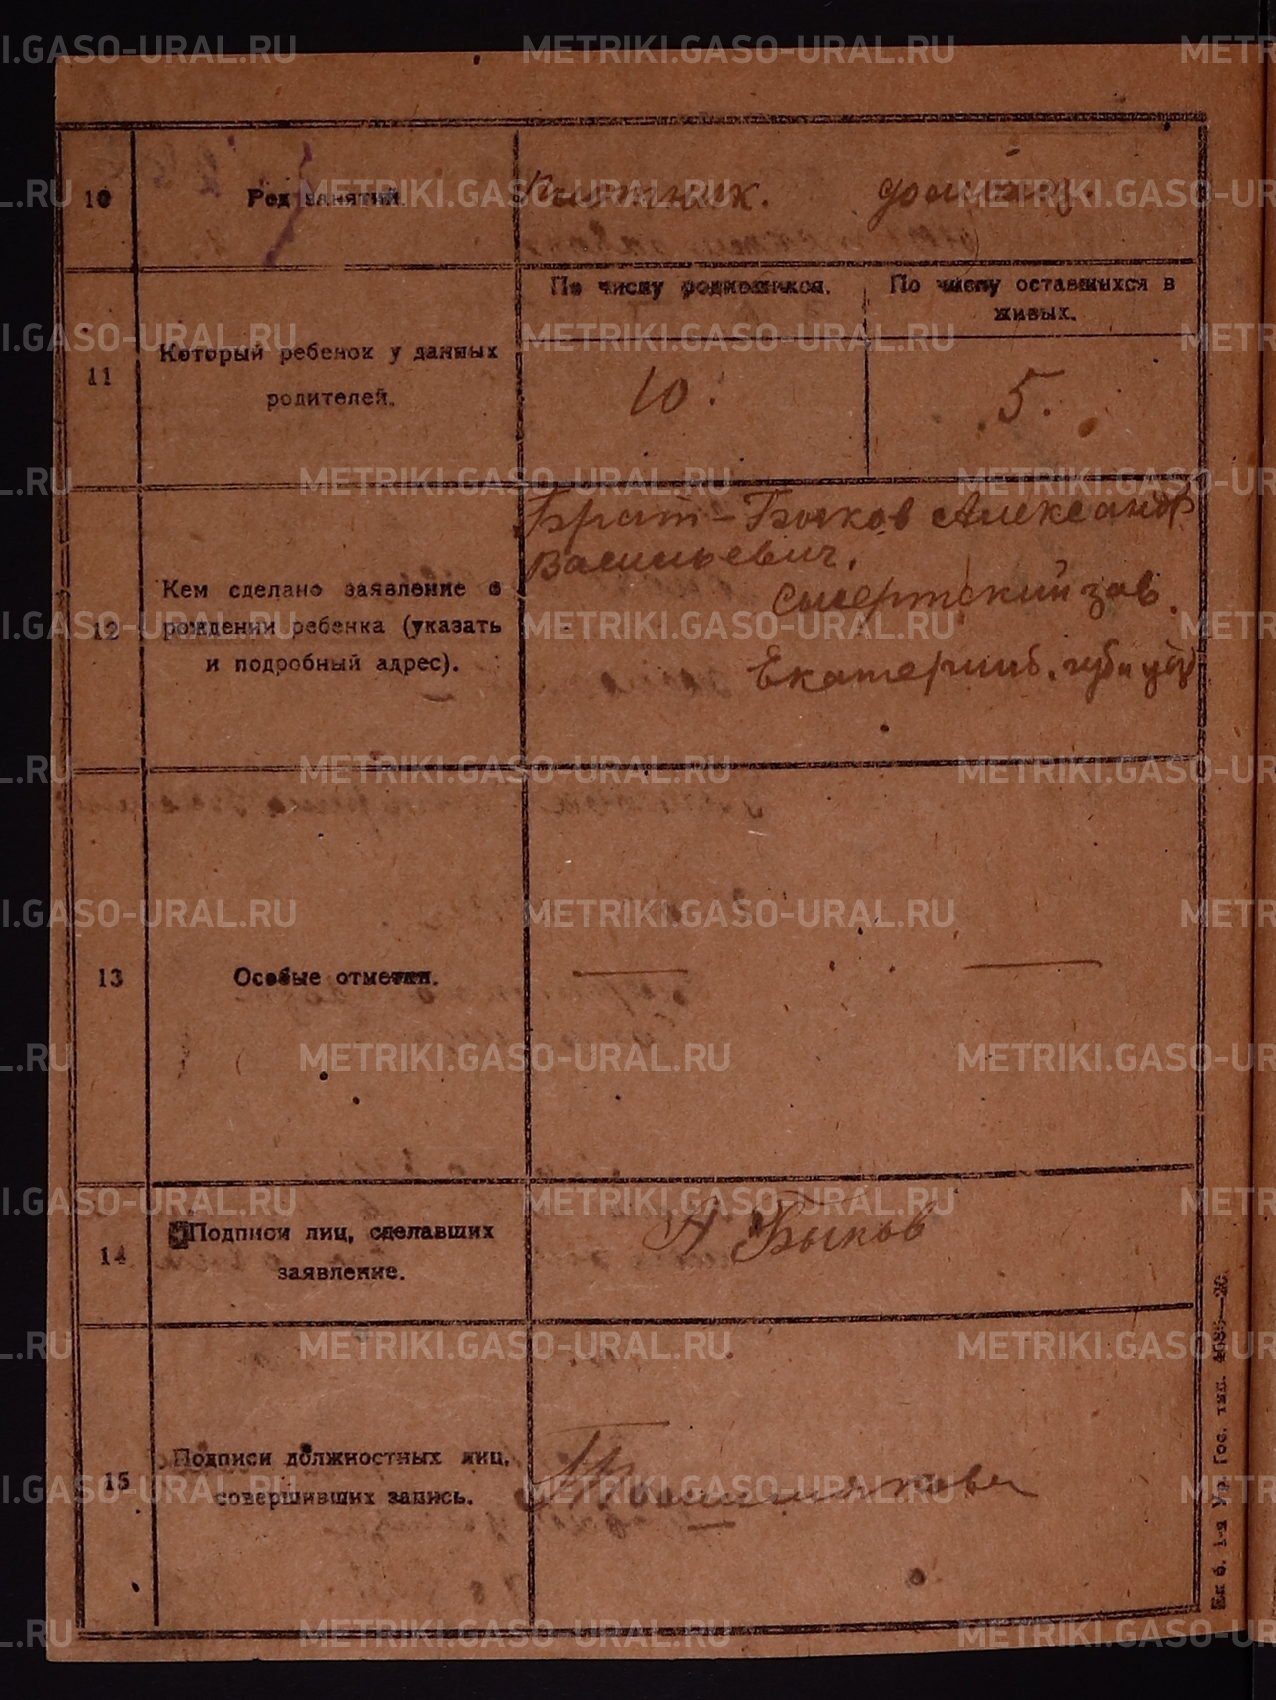 10
Род занятий.
Плотник. домохоз.
11
Который ребенок у данных
родителей.
По числу родившихся.
По числу оставшихся в
живых.
10.
5.
12
Кем сделано заявление о
рождении ребенка (указать
и подробный адрес).
Брат - Быков Александр
Васильевич.
Сысертский зав.
Екатеринб. губ и уезд
13
Особые отметки.
14
Подписи лиц, сделавших
заявление.
А Быков
15
Подписи должностных лиц,
совершивших запись.
Ек б. 1-я Ур. Гос. тип. 4085—20.
METRIKI.GASO-URAL.RU